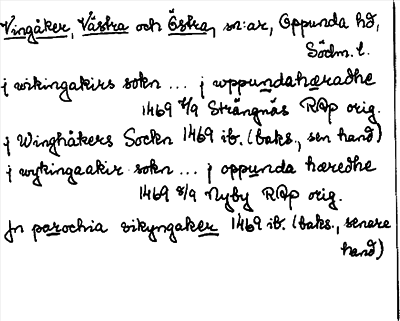 Vingåker, Västra och Östra, sn:ar, Oppunda hd,
Södm. l.
j wikingakirs sokn ... j wppundahæradhe
1469 8/9 Strängnäs RAp orig.
j Winghåkers Sockn 1469 ib. (baks., sen hand)
j wykingaakir sokn ... j oppunda hæredhe
1469 8/9 Nyby RAp orig.
Jn parochia vikyngaker 1469 ib. (baks., senare
hand)